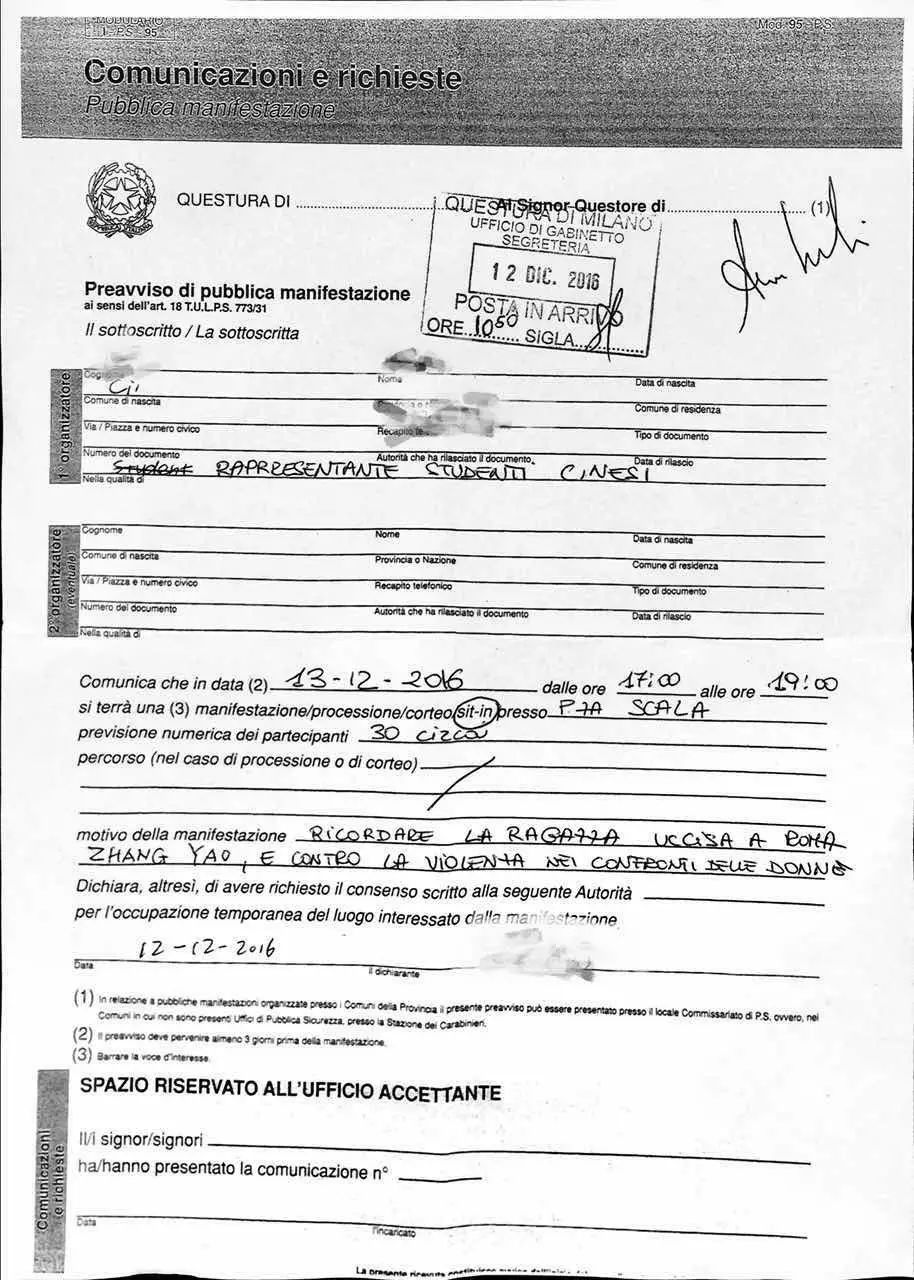 MODULARIO
I - P.S - 95
Mod. 95 P.S.
Comunicazioni e richieste
Pubblica manifestazione
QUESTURA DI
Al Signor Questore di (1)
QUESTURA DI MILANO
UFFICIO DI GABINETTO
SEGRETERIA
12 DIC. 2016
POSTA IN ARRIVO
ORE 10 50 SIGLA
Preavviso di pubblica manifestazione
ai sensi dell'art. 18 T.U.L.P.S. 773/31
Il sottoscritto / La sottoscritta
1° organizzatore
Nome Data di nascita
Comune di nascita Comune di residenza
Via / Piazza e numero civico Recapito Tipo di documento
Numero del documento Autorità che ha rilasciato il documento. Data di rilascio
Student RAPPRESENTANTE STUDENTI CINESI
Nella qualità di
2° organizzatore
(eventuale)
Cognome Nome Data di nascita
Comune di nascita Provincia o Nazione Comune di residenza
Via / Piazza e numero civico Recapito telefonico Tipo di documento
Numero del documento Autorità che ha rilasciato il documento Data di rilascio
Nella qualità di
Comunica che in data (2) 13-12-2016 dalle ore 17:00 alle ore 19:00
si terrà una (3) manifestazione/processione/corteo/sit-in presso P.ZA SCALA
previsione numerica dei partecipanti 30 circa
percorso (nel caso di processione o di corteo)
motivo della manifestazione RICORDARE LA RAGAZZA UCCISA A ROMA
ZHANG YAO, E CONTRO LA VIOLENZA NEI CONFRONTI DELLE DONNE
Dichiara, altresì, di avere richiesto il consenso scritto alla seguente Autorità
per l'occupazione temporanea del luogo interessato dalla manifestazione
12-12-2016
Data Il dichiarante
(1) In relazione a pubbliche manifestazioni organizzate presso i Comuni della Provincia il presente preavviso può essere presentato presso il locale Commissariato di P.S. ovvero, nei
Comuni in cui non sono presenti Uffici di Pubblica Sicurezza, presso la Stazione dei Carabinieri.
(2) Il preavviso deve pervenire almeno 3 giorni prima della manifestazione.
(3) Barrare la voce d'interesse.
SPAZIO RISERVATO ALL'UFFICIO ACCETTANTE
Comunicazioni
e richieste
Il/i signor/signori
ha/hanno presentato la comunicazione n°
Data l'incaricato
La presente ricevuta